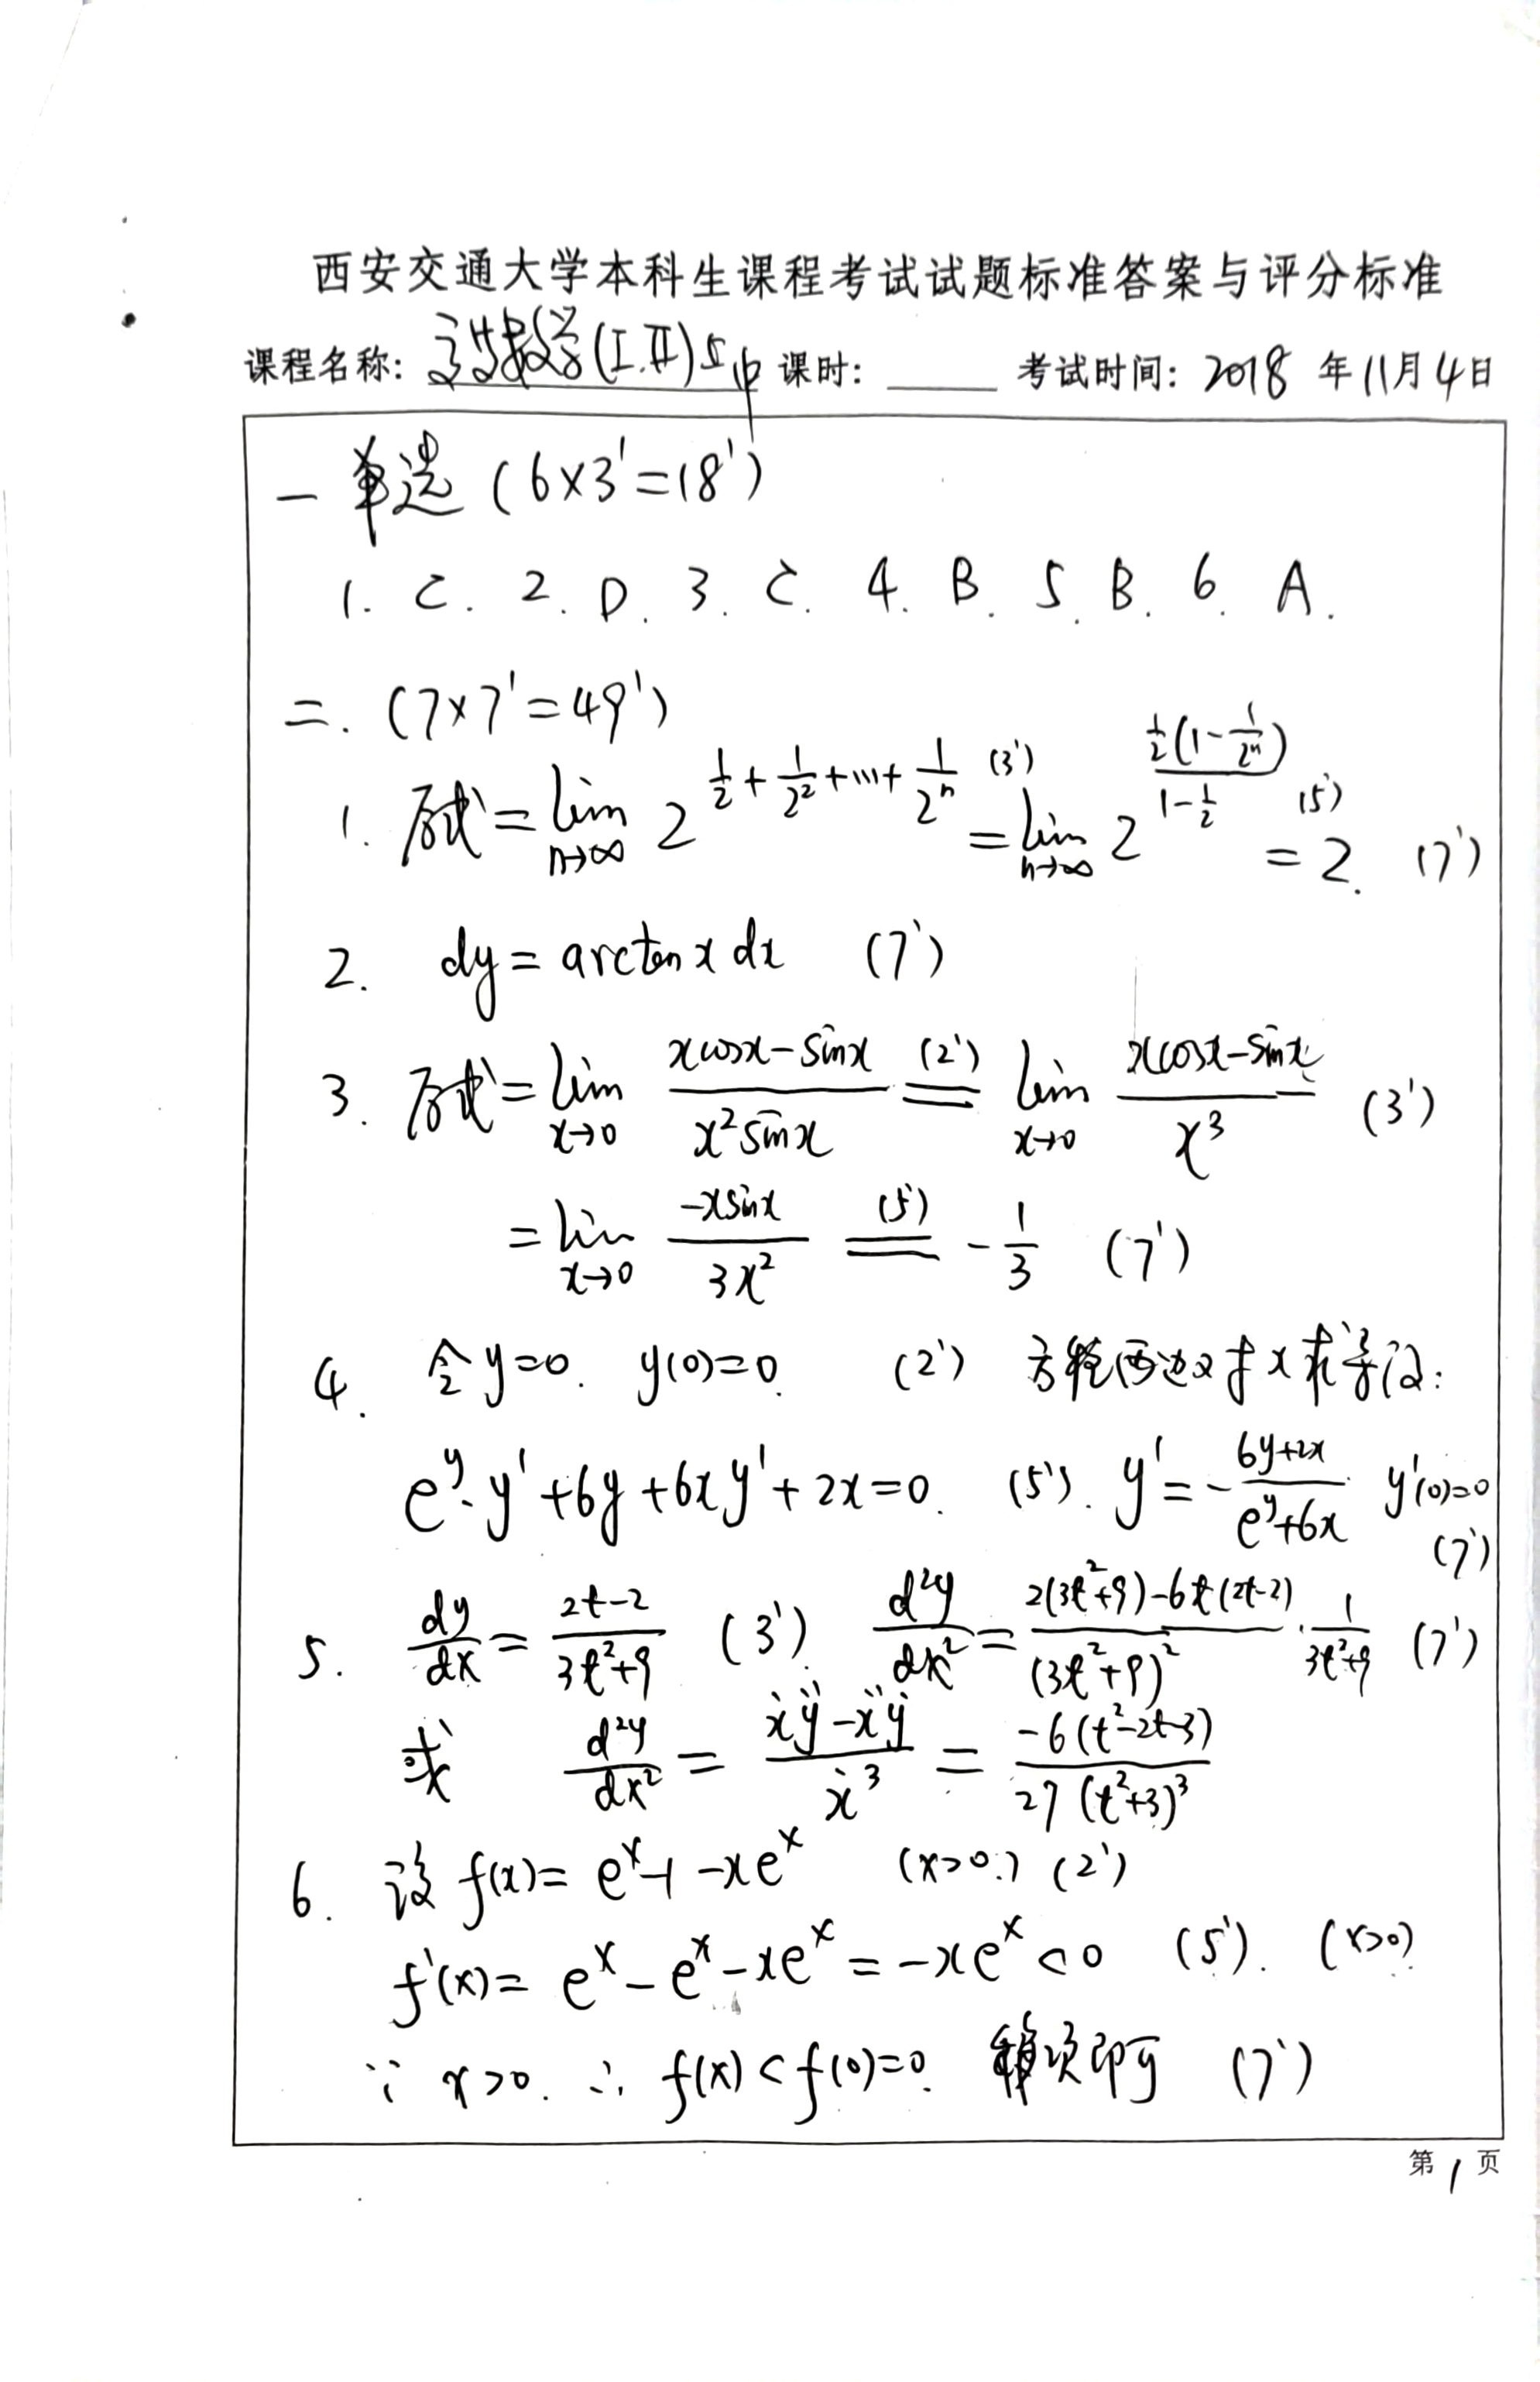 西安交通大学本科生课程考试试题标准答案与评分标准
课程名称: 高等数学(I.II)上中 课时: ____ 考试时间: 2018 年 11月 4日
一 单选 (6×3'=18')
1. C. 2. D. 3. C. 4. B. 5. B. 6. A.
二. (7×7'=49')
1. 原式 = lim_{n→∞} 2^{1/2 + 1/2² + ··· + 1/2ⁿ} (3') = lim_{n→∞} 2^{(1/2(1-1/2ⁿ))/(1-1/2)} (5') = 2. (7')
2. dy = arctan x dx (7')
3. 原式 = lim_{x→0} (xcosx - sinx)/(x² sinx) (2') = lim_{x→0} (xcosx - sinx)/x³ (3')
= lim_{x→0} (-xsinx)/(3x²) (5') = -1/3 (7')
4. 令 y=0. y(0)=0. (2') 方程两边对 x 求导得:
e^y·y' + 6y + 6xy' + 2x = 0. (5'). y' = -(6y+2x)/(e^y+6x) y'(0)=0
(7')
5. dy/dx = (2t-2)/(3t²+9) (3'). d²y/dx² = (2(3t²+9) - 6t(2t-2))/(3t²+9)² · 1/(3t²+9) (7')
或 d²y/dx² = (ẋÿ - ẍẏ)/ẋ³ = -6(t²-2t-3)/(27(t²+3)³)
6. 设 f(x) = e^x - 1 - xe^x (x>0.) (2')
f'(x) = e^x - e^x - xe^x = -xe^x < 0 (5'). (x>0)
∵ x>0. ∴ f(x) < f(0)=0. 移项即可 (7')
第 1 页